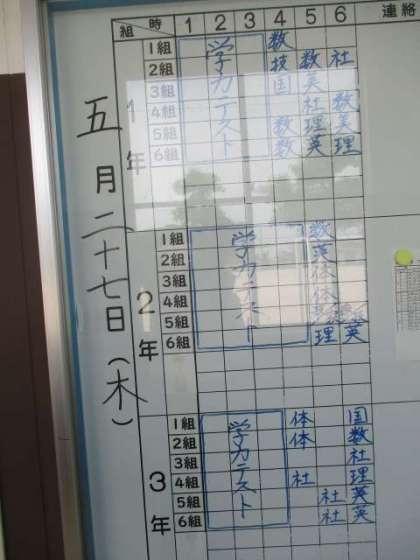 五月二十七日(木)
組 時 1 2 3 4 5 6 連絡
1年
学力テスト
1組 数
2組 技 数 社
3組 国 英
4組 社 数
5組 数 理 英
6組 数 英 理
2年
学力テスト
1組 数
2組 英
3組 体
4組 体
5組
6組 理 英
3年
学力テスト
1組 体 国
2組 体 数
3組 社
4組 社 理
5組 社 英
6組 社 英